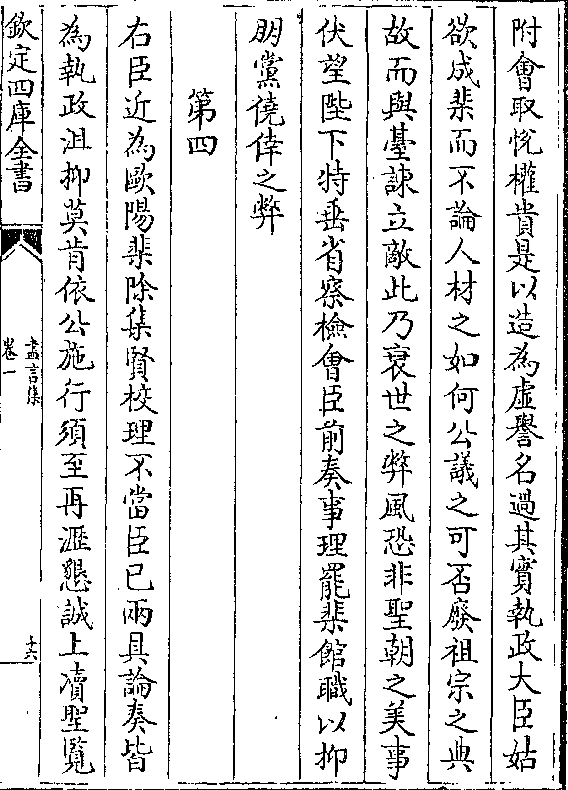 附會取悅權貴是以造為虛譽名過其實執政大臣姑
欲成棐而不論人材之如何公議之可否廢祖宗之典
故而與臺諫立敵此乃衰世之弊風恐非聖朝之美事
伏望陛下特垂省察檢會臣前奏事理罷棐館職以抑
朋黨僥倖之弊
第四
右臣近為歐陽棐除集賢校理不當臣已兩具論奏皆
為執政沮抑莫肯依公施行須至再瀝懇誠上凟聖覽
欽定四庫全書
盡言集
卷一
十六